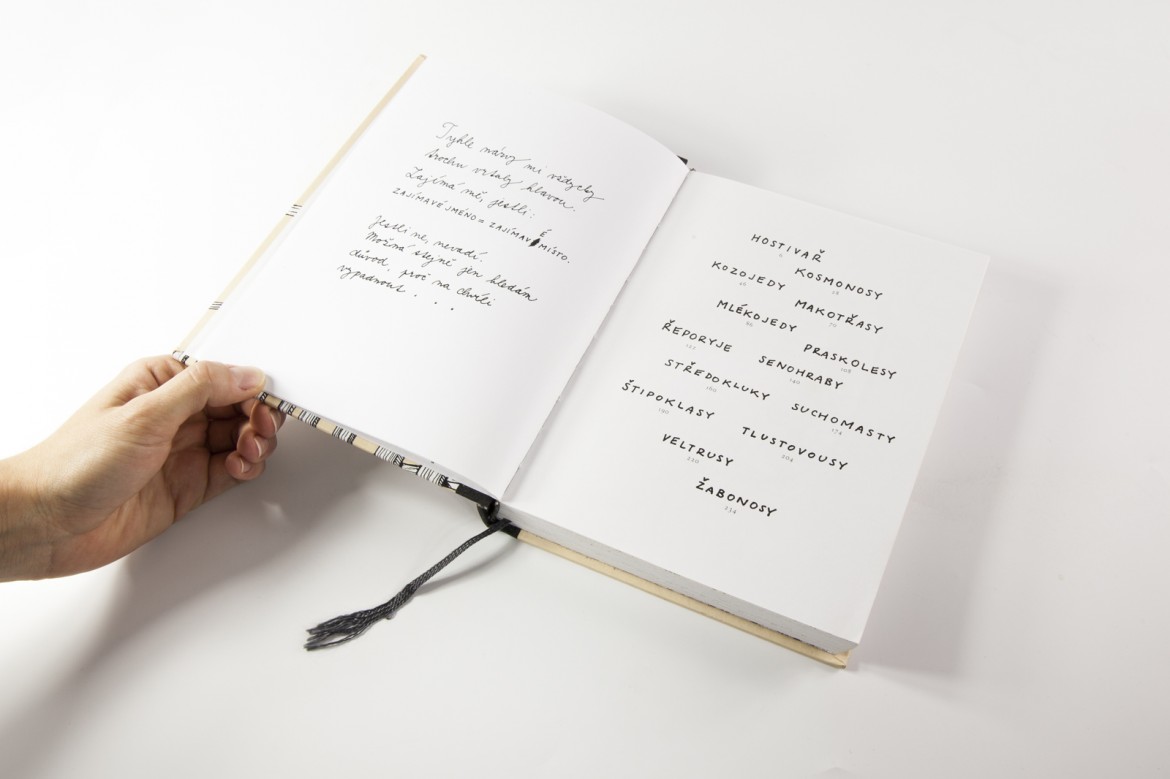 Tyhle názvy mi vždycky
trochu vrtaly hlavou.
Zajímá mě, jestli:
ZAJÍMAVÉ JMÉNO = ZAJÍMAVÉ MÍSTO.
Jestli ne, nevadí.
Možná stejně jen hledám
důvod, proč na chvíli
vypadnout...
HOSTIVAŘ
KOSMONOSY
KOZOJEDY
MAKOTŘASY
70
MLÉKOJEDY
PRASKOLESY
108
ŘEPORYJE
SENOHRABY
140
STŘEDOKLUKY
160
SUCHOMASTY
174
ŠTIPOKLASY
190
TLUSTOVOUSY
204
VELTRUSY
220
ŽABONOSY
234